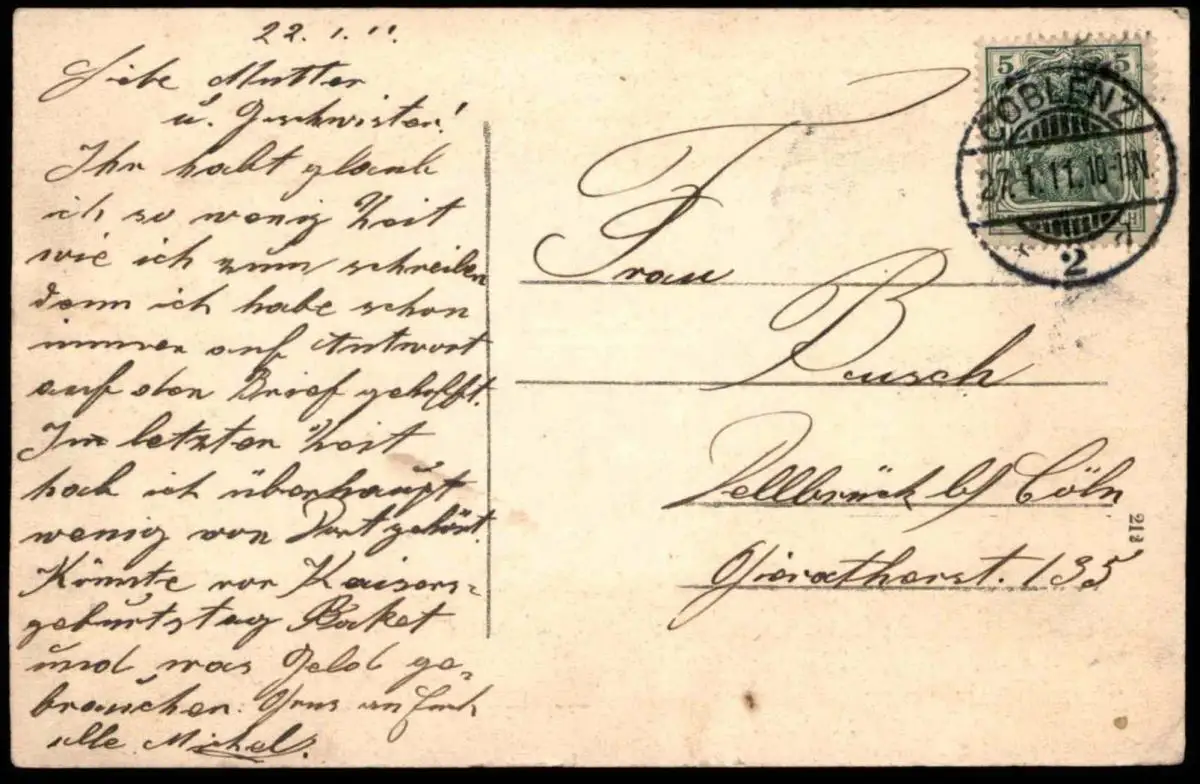 22. 1. 11.
Liebe Mutter
u. Geschwister!
Ihr habt glaub
ich so wenig Zeit
wie ich zum schreiben
denn ich habe schon
immer auf Antwort
auf den Brief gehofft.
In letzten Zeit
hab ich überhaupt
wenig von Dort gehört.
Könnte vor Kaisers=
geburtstag Paket
und was Geld ge-
brauchen. Grus an Euch
alle Michel.
5 5
COBLENZ
27.1.11.10-11N.
* 2 d
Frau
Busch
Dellbrück b/ Cöln
Gieratherst. 135
213